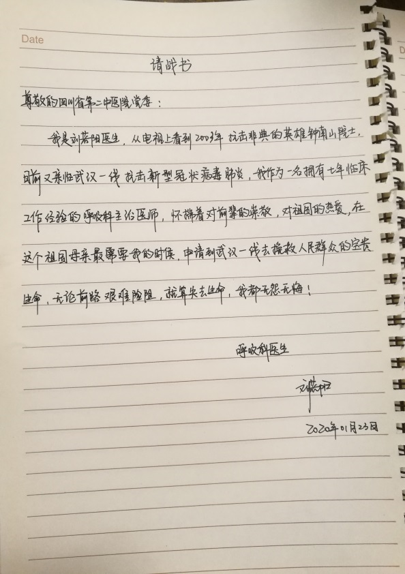 Date
请战书
尊敬的四川省第二中医院党委：
我是刘蓉阳医生，从电视上看到2003年抗击非典的英雄钟南山院士，
目前又亲临武汉一线抗击新型冠状病毒肺炎，我作为一名拥有七年临床
工作经验的呼吸科主治医师，怀揣着对前辈的崇敬，对祖国的热爱，在
这个祖国母亲最需要我的时候，申请到武汉一线去挽救人民群众的宝贵
生命，无论前路艰难险阻，就算失去生命，我都无怨无悔！
呼吸科医生
2020年01月23日